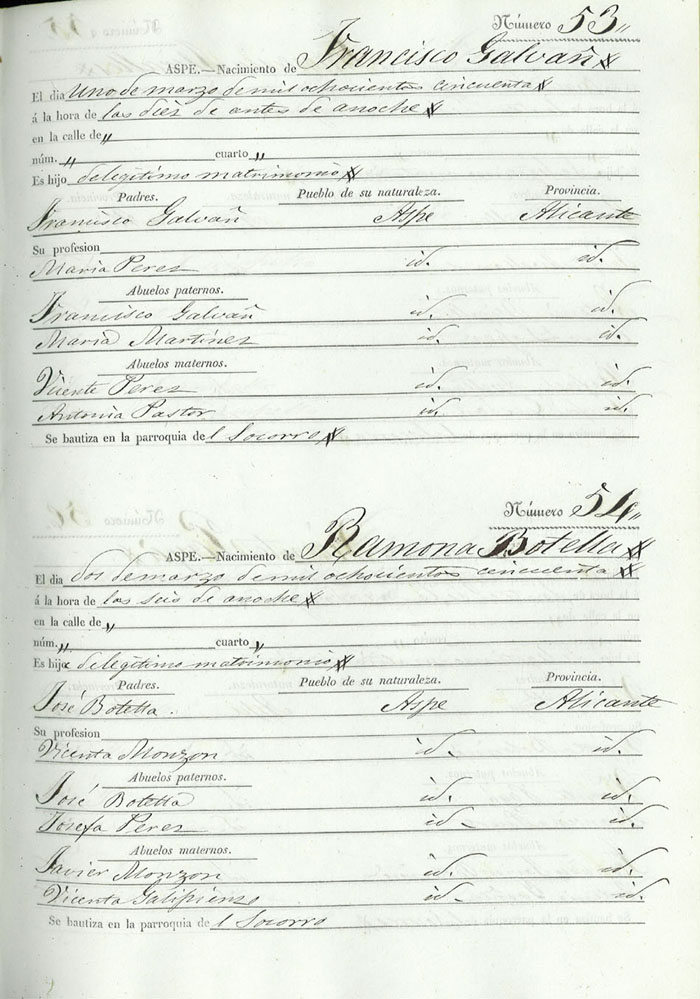 Número 53,,
ASPE.—Nacimiento de Francisco Galvañ
El dia Uno de marzo de mil ochocientos cincuenta
á la hora de las diez de antes de anoche
en la calle de ,,
núm. ,, cuarto ,,
Es hijo de legitimo matrimonio
Padres. Pueblo de su naturaleza. Provincia.
Francisco Galvañ Aspe Alicante
Su profesion
Maria Perez id. id.
Abuelos paternos.
Francisco Galvañ id. id.
Maria Martinez id. id.
Abuelos maternos.
Vicente Perez id. id.
Antonia Pastor id. id.
Se bautiza en la parroquia del Socorro
Número 54,,
ASPE.—Nacimiento de Ramona Botella
El dia dos de marzo de mil ochocientos cincuenta
á la hora de las seis de anoche
en la calle de ,,
núm. ,, cuarto ,,
Es hija de legitimo matrimonio
Padres. Pueblo de su naturaleza. Provincia.
José Botella. Aspe Alicante
Su profesion
Vicenta Monzon id. id.
Abuelos paternos.
José Botella id. id.
Josefa Perez id. id.
Abuelos maternos.
Javier Monzon id. id.
Vicenta Galipienso id. id.
Se bautiza en la parroquia del Socorro